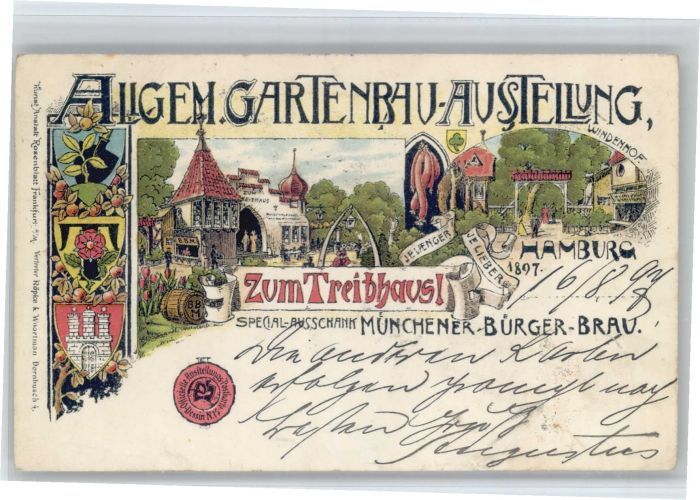 ALLGEM. GARTENBAU-AUSSTELLUNG,
WINDENHOF.
ZUM
JE LÄNGER
JE LIEBER
HAMBURG
1897.
16/8 97
Zum Treibhaus!
SPECIAL-AUSSCHANK MÜNCHENER-BÜRGER-BRÄU.
Die anderen Karten
erfolgen prompt nach
besten Gruß
Augustus
Kunst Anstalt Rosenblatt Frankfurt a/M. Vertreter Röpke & Woortman Dornbusch 4.